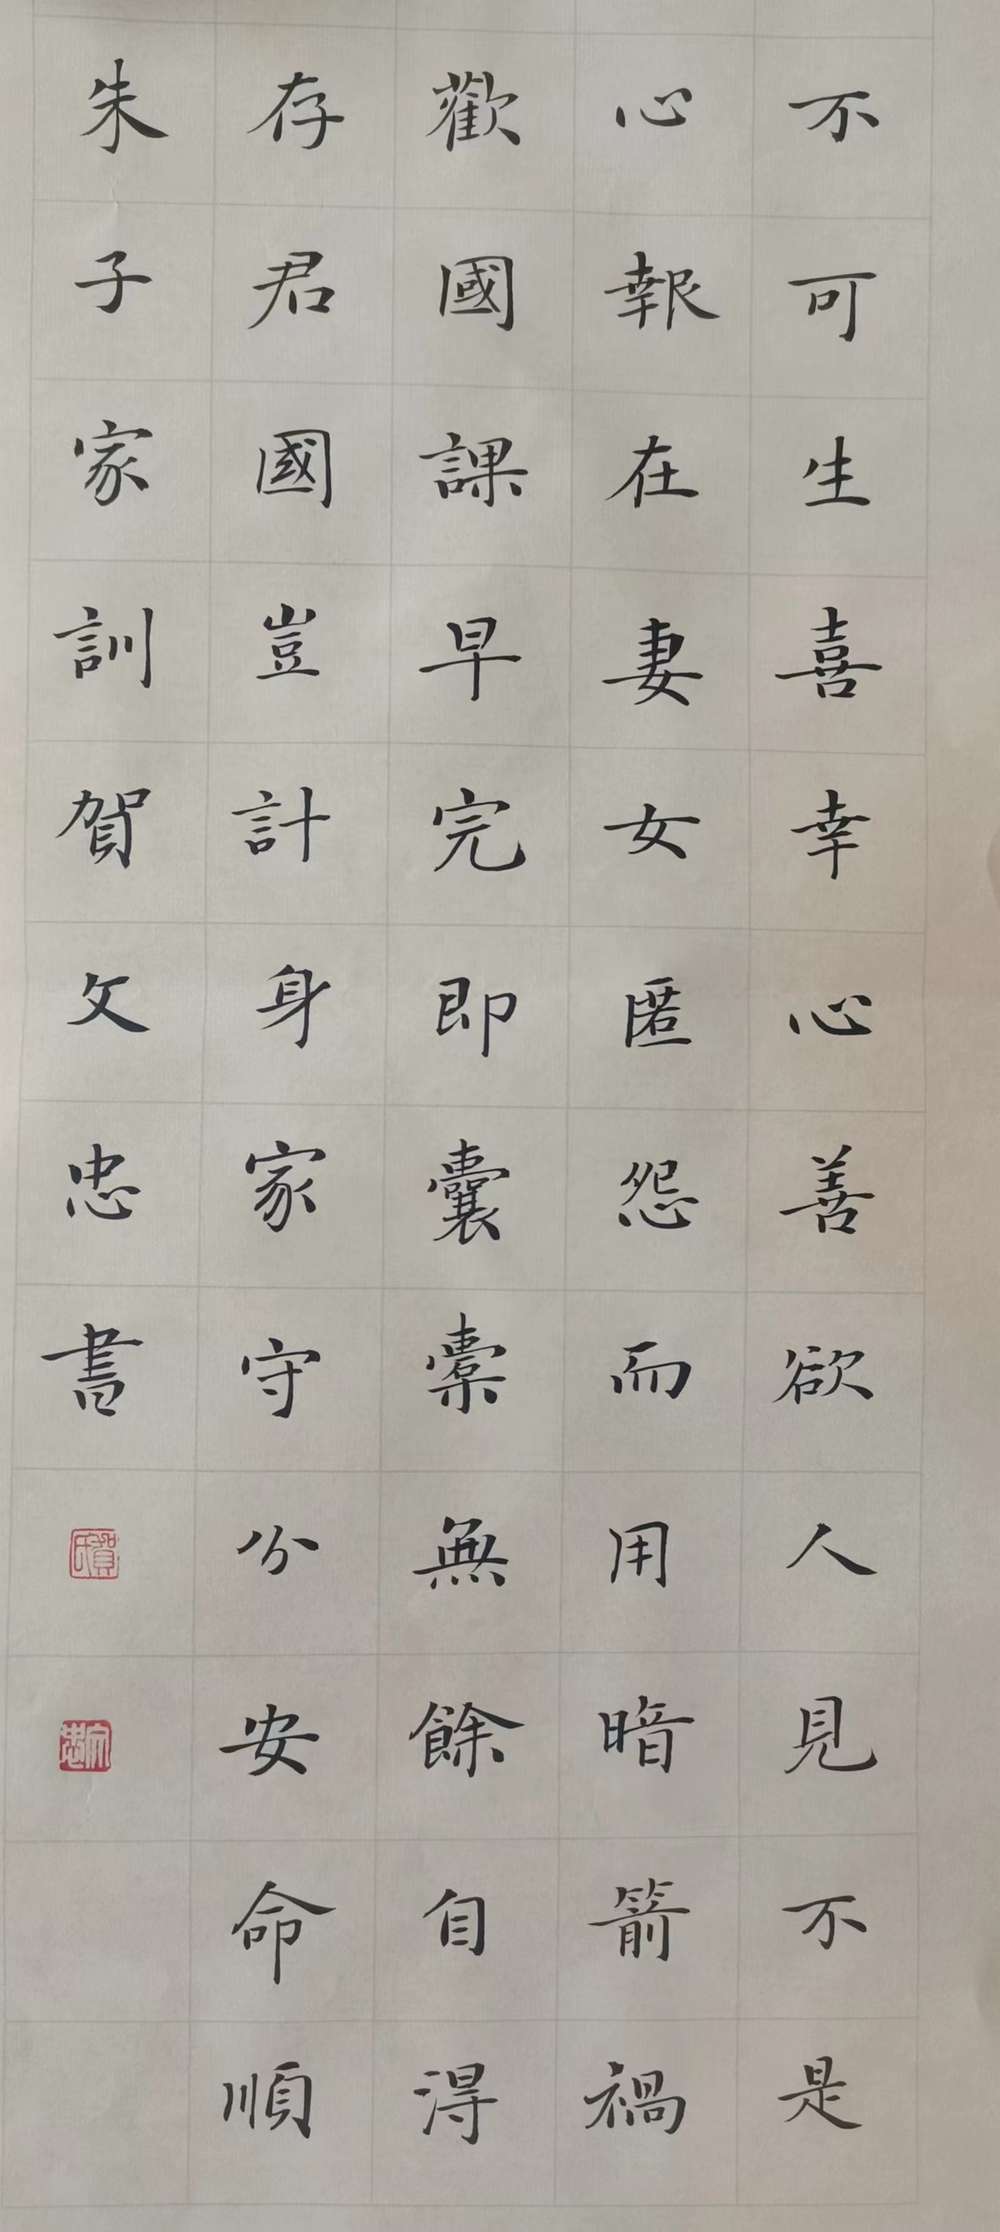 不可生喜幸心善欲人見不是
心報在妻女匿怨而用暗箭禍
歡國課早完即囊橐無餘自得
存君國豈計身家守分安命順
朱子家訓賀文忠書
賀氏
文忠